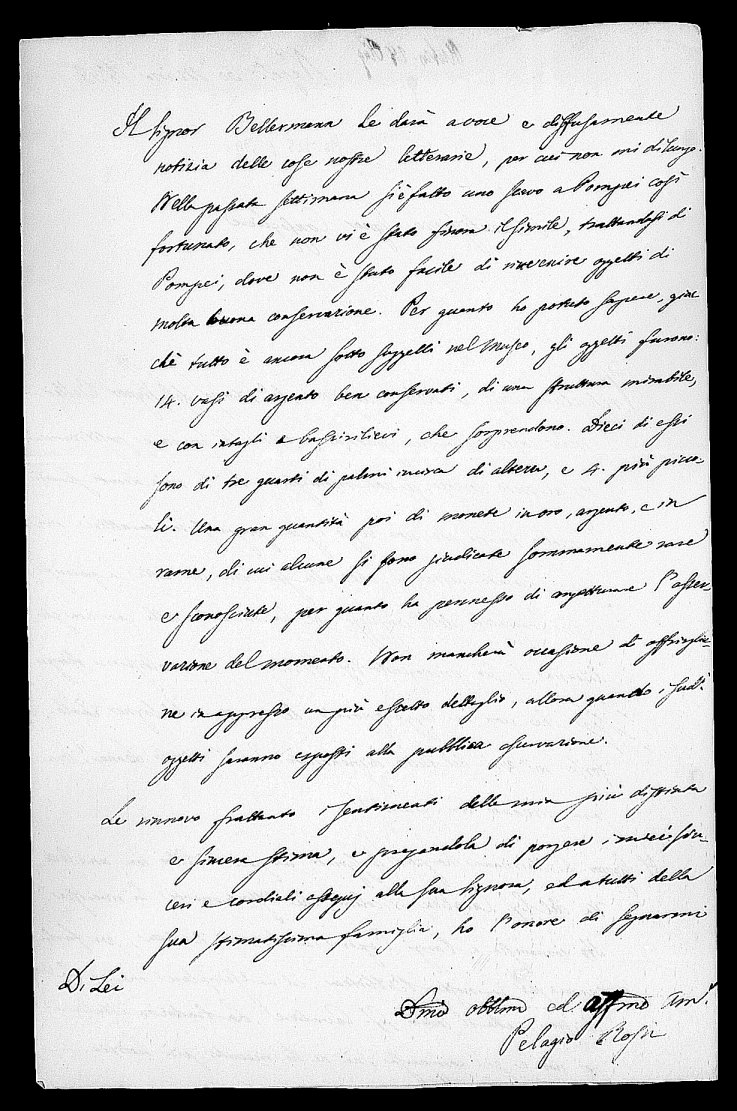 Il Signor Bellermann Le darà a voce e diffusamente
notizia delle cose nostre letterarie, per cui non mi dilungo.
Nella passata settimana si è fatto uno scavo a Pompei così
fortunato, che non vi è stato finora il simile, trattandosi di
Pompei, dove non è stato facile di rinvenire oggetti di
molta buona conservazione. Per quanto ho potuto sapere, giac-
chè tutto è ancora sotto suggelli nel Museo, gli oggetti furono:
14. vasi di argento ben conservati, di una struttura mirabile,
e con intagli a bassirilievi, che sorprendono. Dieci di essi
sono di tre quarti di palmi incirca di altezza, e 4. più picco-
li. Una gran quantità poi di monete in oro, argento, e in
rame, di cui alcune si sono giudicate sommamente rare
e sconosciute, per quanto ha permesso di congetturare l'osser-
vazione del momento. Non mancherà occasione di offrirglie-
ne in appresso un più esatto dettaglio, allora quando i sudd.i
oggetti saranno esposti alla pubblica osservazione.
Le rinnovo frattanto i sentimenti della mia più distinta
e sincera stima, e pregandola di porgere i miei sin-
ceri e cordiali ossequj alla sua Signora, ed a tutti della
sua stimatissima famiglia, ho l'onore di segnarmi
Di Lei
Dmo obblmo ed affmo Am.
Pelagio Rossi